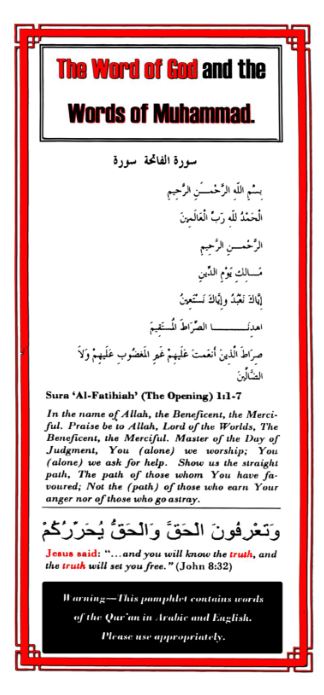 The Word of God and the
Words of Muhammad.
سورة الفاتحة سورة
بِسْمِ اللّهِ الرَّحْمَـنِ الرَّحِيمِ
الْحَمْدُ للّهِ رَبِّ الْعَالَمِينَ
الرَّحْمـنِ الرَّحِيمِ
مَـالِكِ يَوْمِ الدِّينِ
إِيَّاكَ نَعْبُدُ وإِيَّاكَ نَسْتَعِينُ
اهدِنَــــا الصِّرَاطَ المُستَقِيمَ
صِرَاطَ الَّذِينَ أَنعَمتَ عَلَيهِمْ غَيرِ المَغضُوبِ عَلَيهِمْ وَلاَ
الضَّالِّينَ
Sura ‘Al-Fatihiah’ (The Opening) 1:1-7
In the name of Allah, the Beneficent, the Merci-
ful. Praise be to Allah, Lord of the Worlds, The
Beneficent, the Merciful. Master of the Day of
Judgment, You (alone) we worship; You
(alone) we ask for help. Show us the straight
path, The path of those whom You have fa-
voured; Not the (path) of those who earn Your
anger nor of those who go astray.
وَتَعْرِفُونَ الْحَقَّ وَالْحَقُّ يُحَرِّرُكُمْ
Jesus said: “...and you will know the truth, and
the truth will set you free.” (John 8:32)
Warning—This pamphlet contains words
of the Qur’an in Arabic and English.
Please use appropriately.